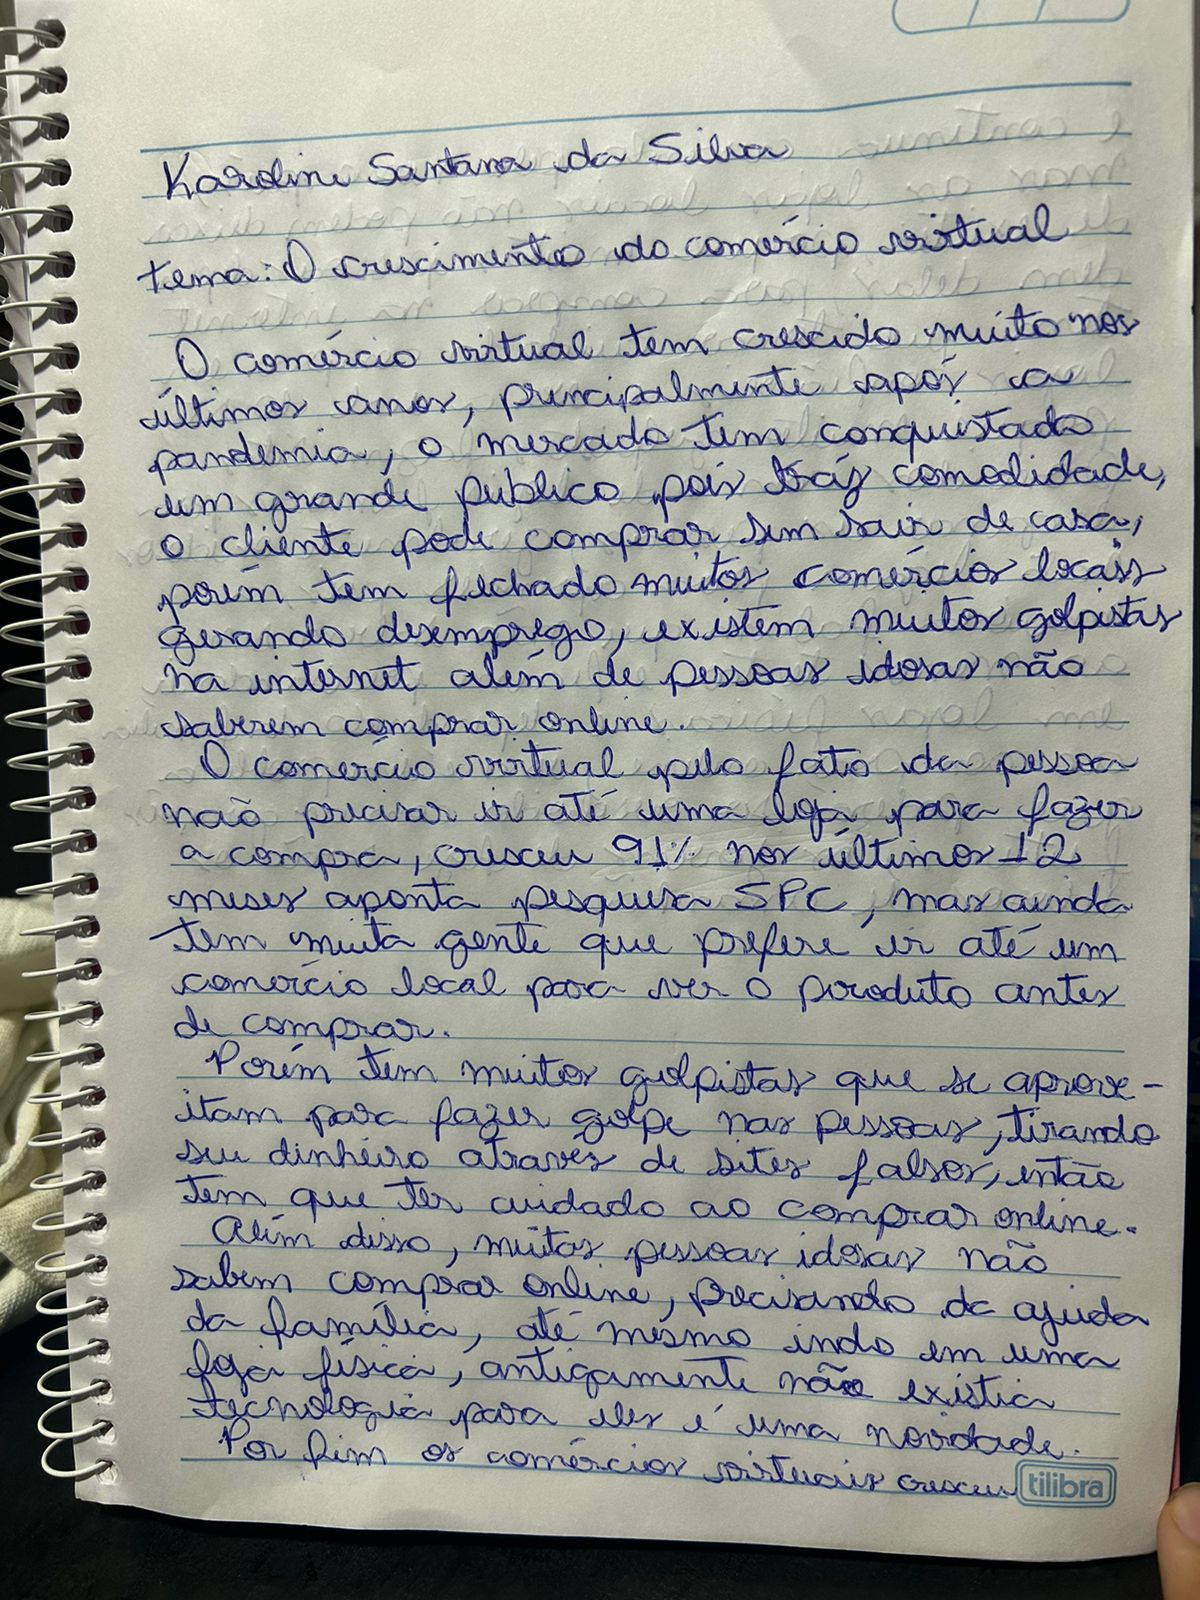 Karoline Santana da Silva
tema: O crescimento do comércio virtual
O comércio virtual tem crescido muito nos
últimos anos, principalmente após a
pandemia, o mercado tem conquistado
um grande público pois tráz comodidade,
o cliente pode comprar sem sair de casa,
porém tem fechado muitos comércios locais
gerando desemprego, existem muitos golpistas
na internet além de pessoas idosas não
saberem comprar online.
O comércio virtual pelo fato da pessoa
não precisar ir até uma loja para fazer
a compra, cresceu 91% nos últimos 12
meses aponta pesquisa SPC, mas ainda
tem muita gente que prefere ir até um
comércio local para ver o produto antes
de comprar.
Porém tem muitos golpistas que se aprove-
itam para fazer golpe nas pessoas, tirando
seu dinheiro através de sites falsos, então
tem que ter cuidado ao comprar online.
Além disso, muitas pessoas idosas não
sabem comprar online, precisando da ajuda
da família, até mesmo indo em uma
loja física, antigamente não existia
tecnologia para eles é uma novidade.
Por fim os comércios virtuais cresceu
tilibra